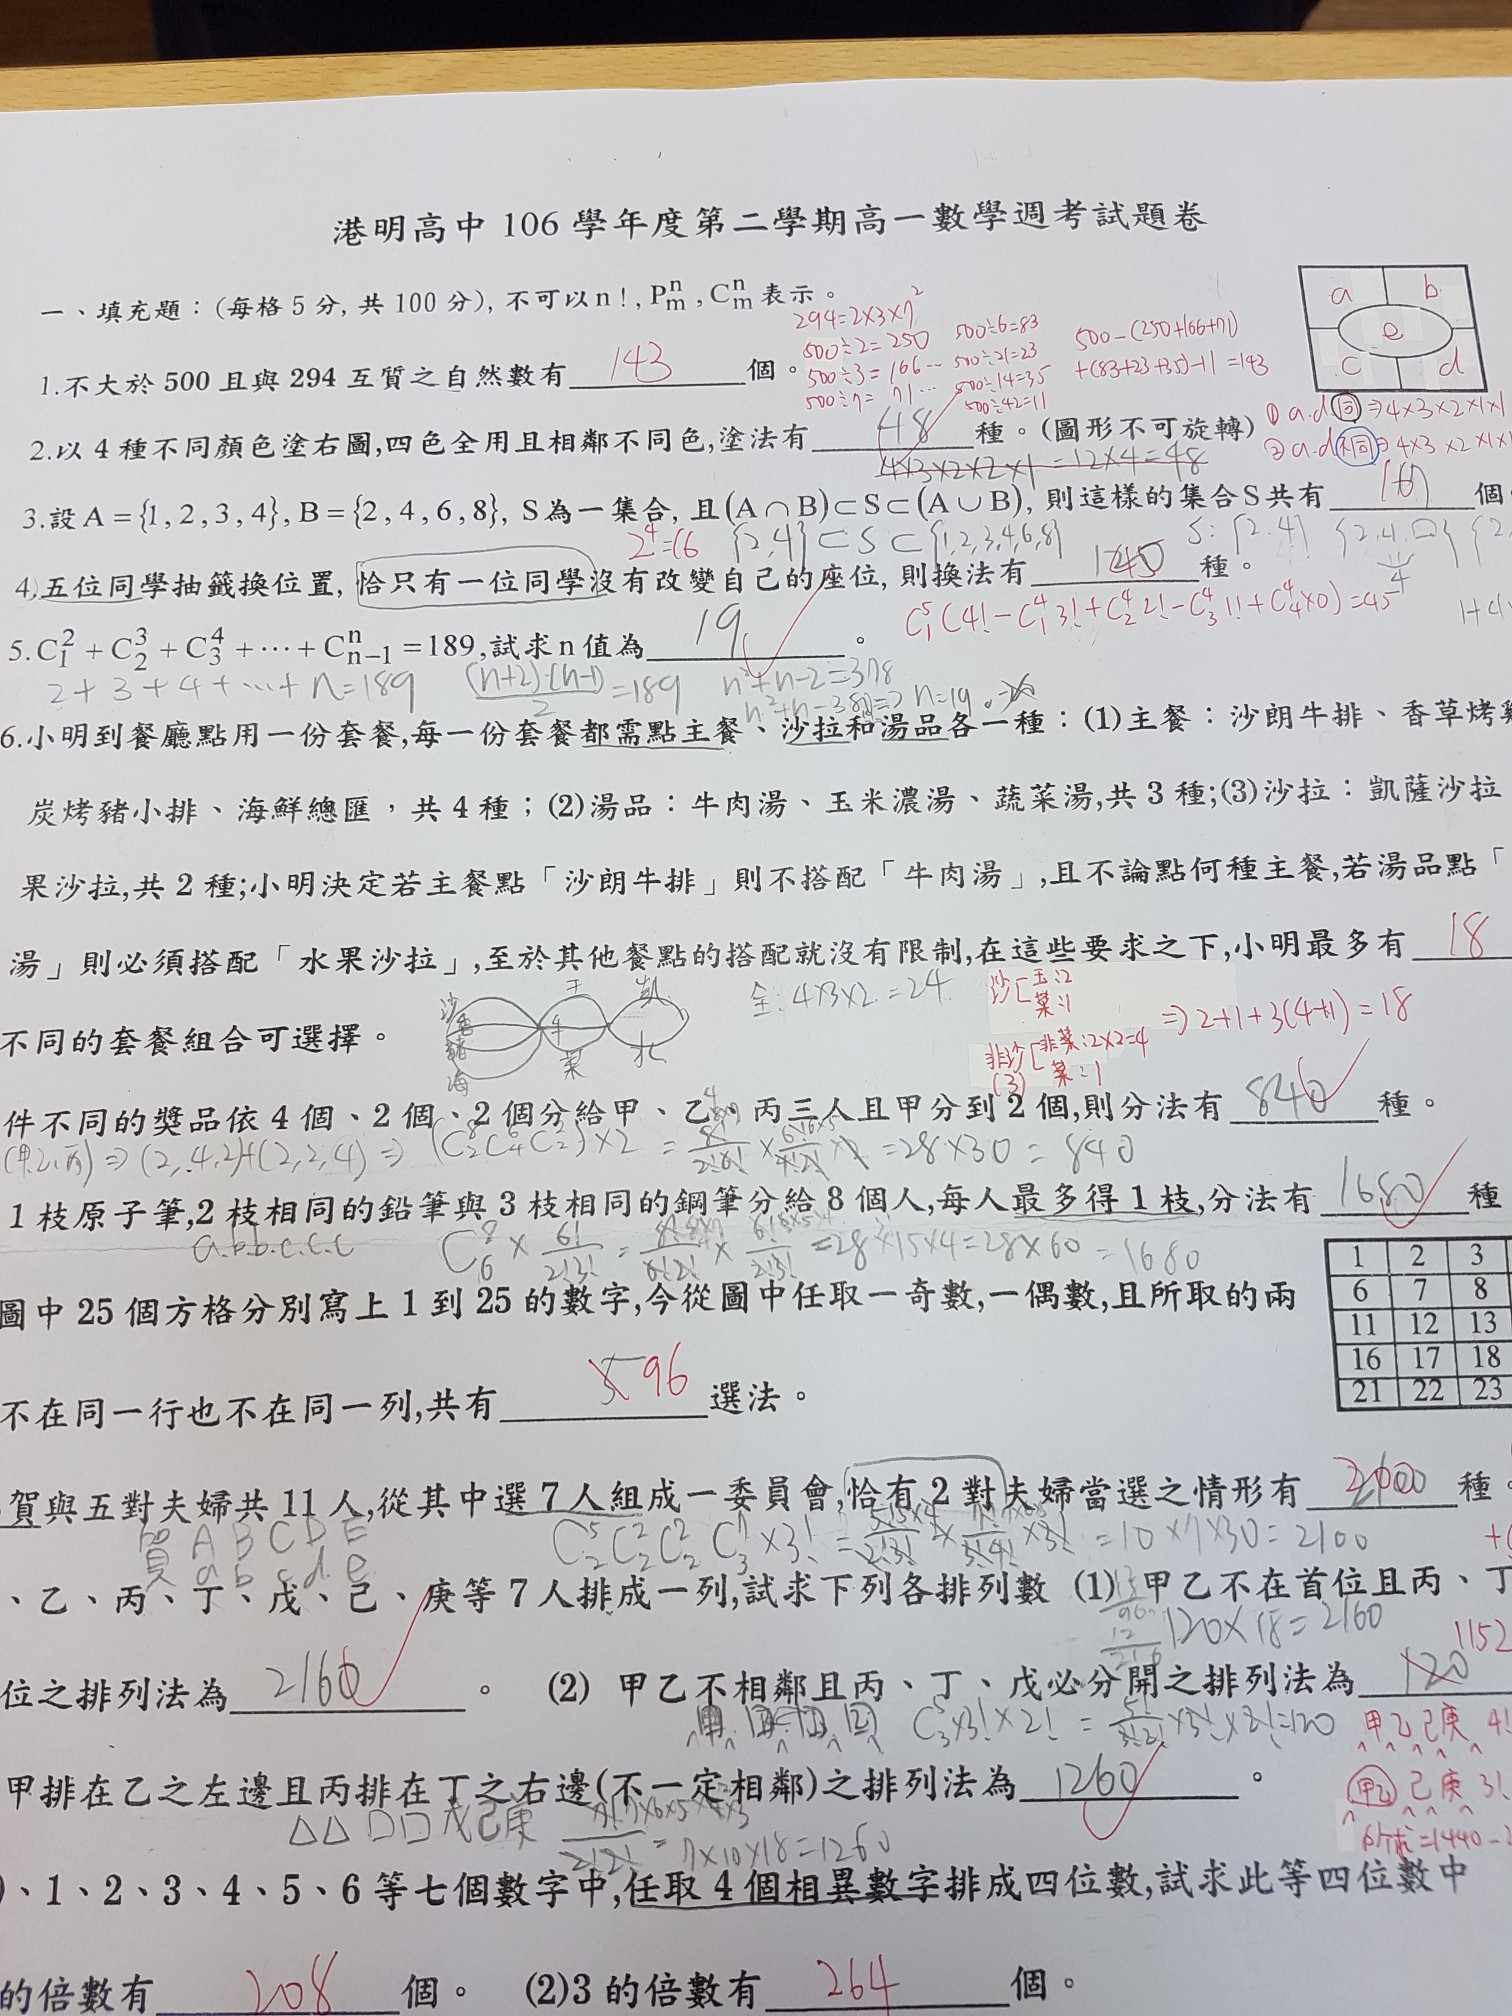 港明高中 106 學年度第二學期高一數學週考試題卷
一、填充題：(每格 5 分, 共 100 分), 不可以 n!, P^n_m, C^n_m 表示。
294=2×3×7²
500÷2=250 500÷6=83 500-(250+166+71)
500÷3=166… 500÷21=23 +(83+23+35)-11=143
500÷7=71… 500÷14=35
500÷42=11
a b
e
c d
1.不大於 500 且與 294 互質之自然數有 143 個。
① a.d 同 ⇒4×3×2×1×1
2.以 4 種不同顏色塗右圖,四色全用且相鄰不同色,塗法有 48 種。(圖形不可旋轉)
② a.d 不同 ⇒4×3×2×1×
4×3×2×2×1=12×4=48
3.設 A={1,2,3,4}, B={2,4,6,8}, S 為一集合, 且(A∩B)⊂S⊂(A∪B), 則這樣的集合 S 共有 16 個
2⁴=16 {2,4}⊂S⊂{1,2,3,4,6,8}
4.五位同學抽籤換位置, 恰只有一位同學沒有改變自己的座位, 則換法有 45 種。
C^5_1(4!-C^4_1 3!+C^4_2 2!-C^4_3 1!+C^4_4×0)=45
5.C^2_1+C^3_2+C^4_3+⋯+C^n_{n-1}=189,試求 n 值為 19 。
2+3+4+…+n=189 (n+2)(n-1)/2=189 n²+n-2=378
n²+n-380 ⇒ n=19
6.小明到餐廳點用一份套餐,每一份套餐都需點主餐、沙拉和湯品各一種：(1)主餐：沙朗牛排、香草烤
炭烤豬小排、海鮮總匯，共 4 種；(2)湯品：牛肉湯、玉米濃湯、蔬菜湯,共 3 種;(3)沙拉：凱薩沙拉
果沙拉,共 2 種;小明決定若主餐點「沙朗牛排」則不搭配「牛肉湯」,且不論點何種主餐,若湯品點「
湯」則必須搭配「水果沙拉」,至於其他餐點的搭配就沒有限制,在這些要求之下,小明最多有 18
全: 4×3×2=24
沙 玉:2
菜:1
⇒2+1+3(4+1)=18
非沙 非菜:2×2=4
(3) 菜:1
不同的套餐組合可選擇。
件不同的獎品依 4 個、2 個、2 個分給甲、乙、丙三人且甲分到 2 個,則分法有 840 種。
(甲,乙,丙)⇒(2,4,2)+(2,2,4)⇒(C^8_2 C^6_4 C^2_2)×2 =28×30=840
1 枝原子筆,2 枝相同的鉛筆與 3 枝相同的鋼筆分給 8 個人,每人最多得 1 枝,分法有 1680 種
a.b.b.c.c.c C^8_6×6!/2!3! =28×15×4=28×60=1680
圖中 25 個方格分別寫上 1 到 25 的數字,今從圖中任取一奇數,一偶數,且所取的兩
1 2 3
6 7 8
11 12 13
16 17 18
21 22 23
不在同一行也不在同一列,共有 96 選法。
賀與五對夫婦共 11 人,從其中選 7 人組成一委員會,恰有 2 對夫婦當選之情形有 種。
賀 A B C D E
賀 a b c d e
C^5_2 C^2_2 C^2_2 C^7_3×3! =10×7×30=2100
、乙、丙、丁、戊、己、庚等 7 人排成一列,試求下列各排列數 (1) 甲乙不在首位且丙、丁
120×18=2160
位之排列法為 2160 。 (2) 甲乙不相鄰且丙、丁、戊必分開之排列法為 120 1152
C^5_3×3!×2! = 5!/3!2!×3!×2!=120
甲乙己庚 4!
甲排在乙之左邊且丙排在丁之右邊(不一定相鄰)之排列法為 1260 。
甲乙 己庚 3!
△△ □□ 戊己庚 =7×10×18=1260
所求=1440-2
、1、2、3、4、5、6 等七個數字中,任取 4 個相異數字排成四位數,試求此等四位數中
的倍數有 208 個。 (2)3 的倍數有 264 個。